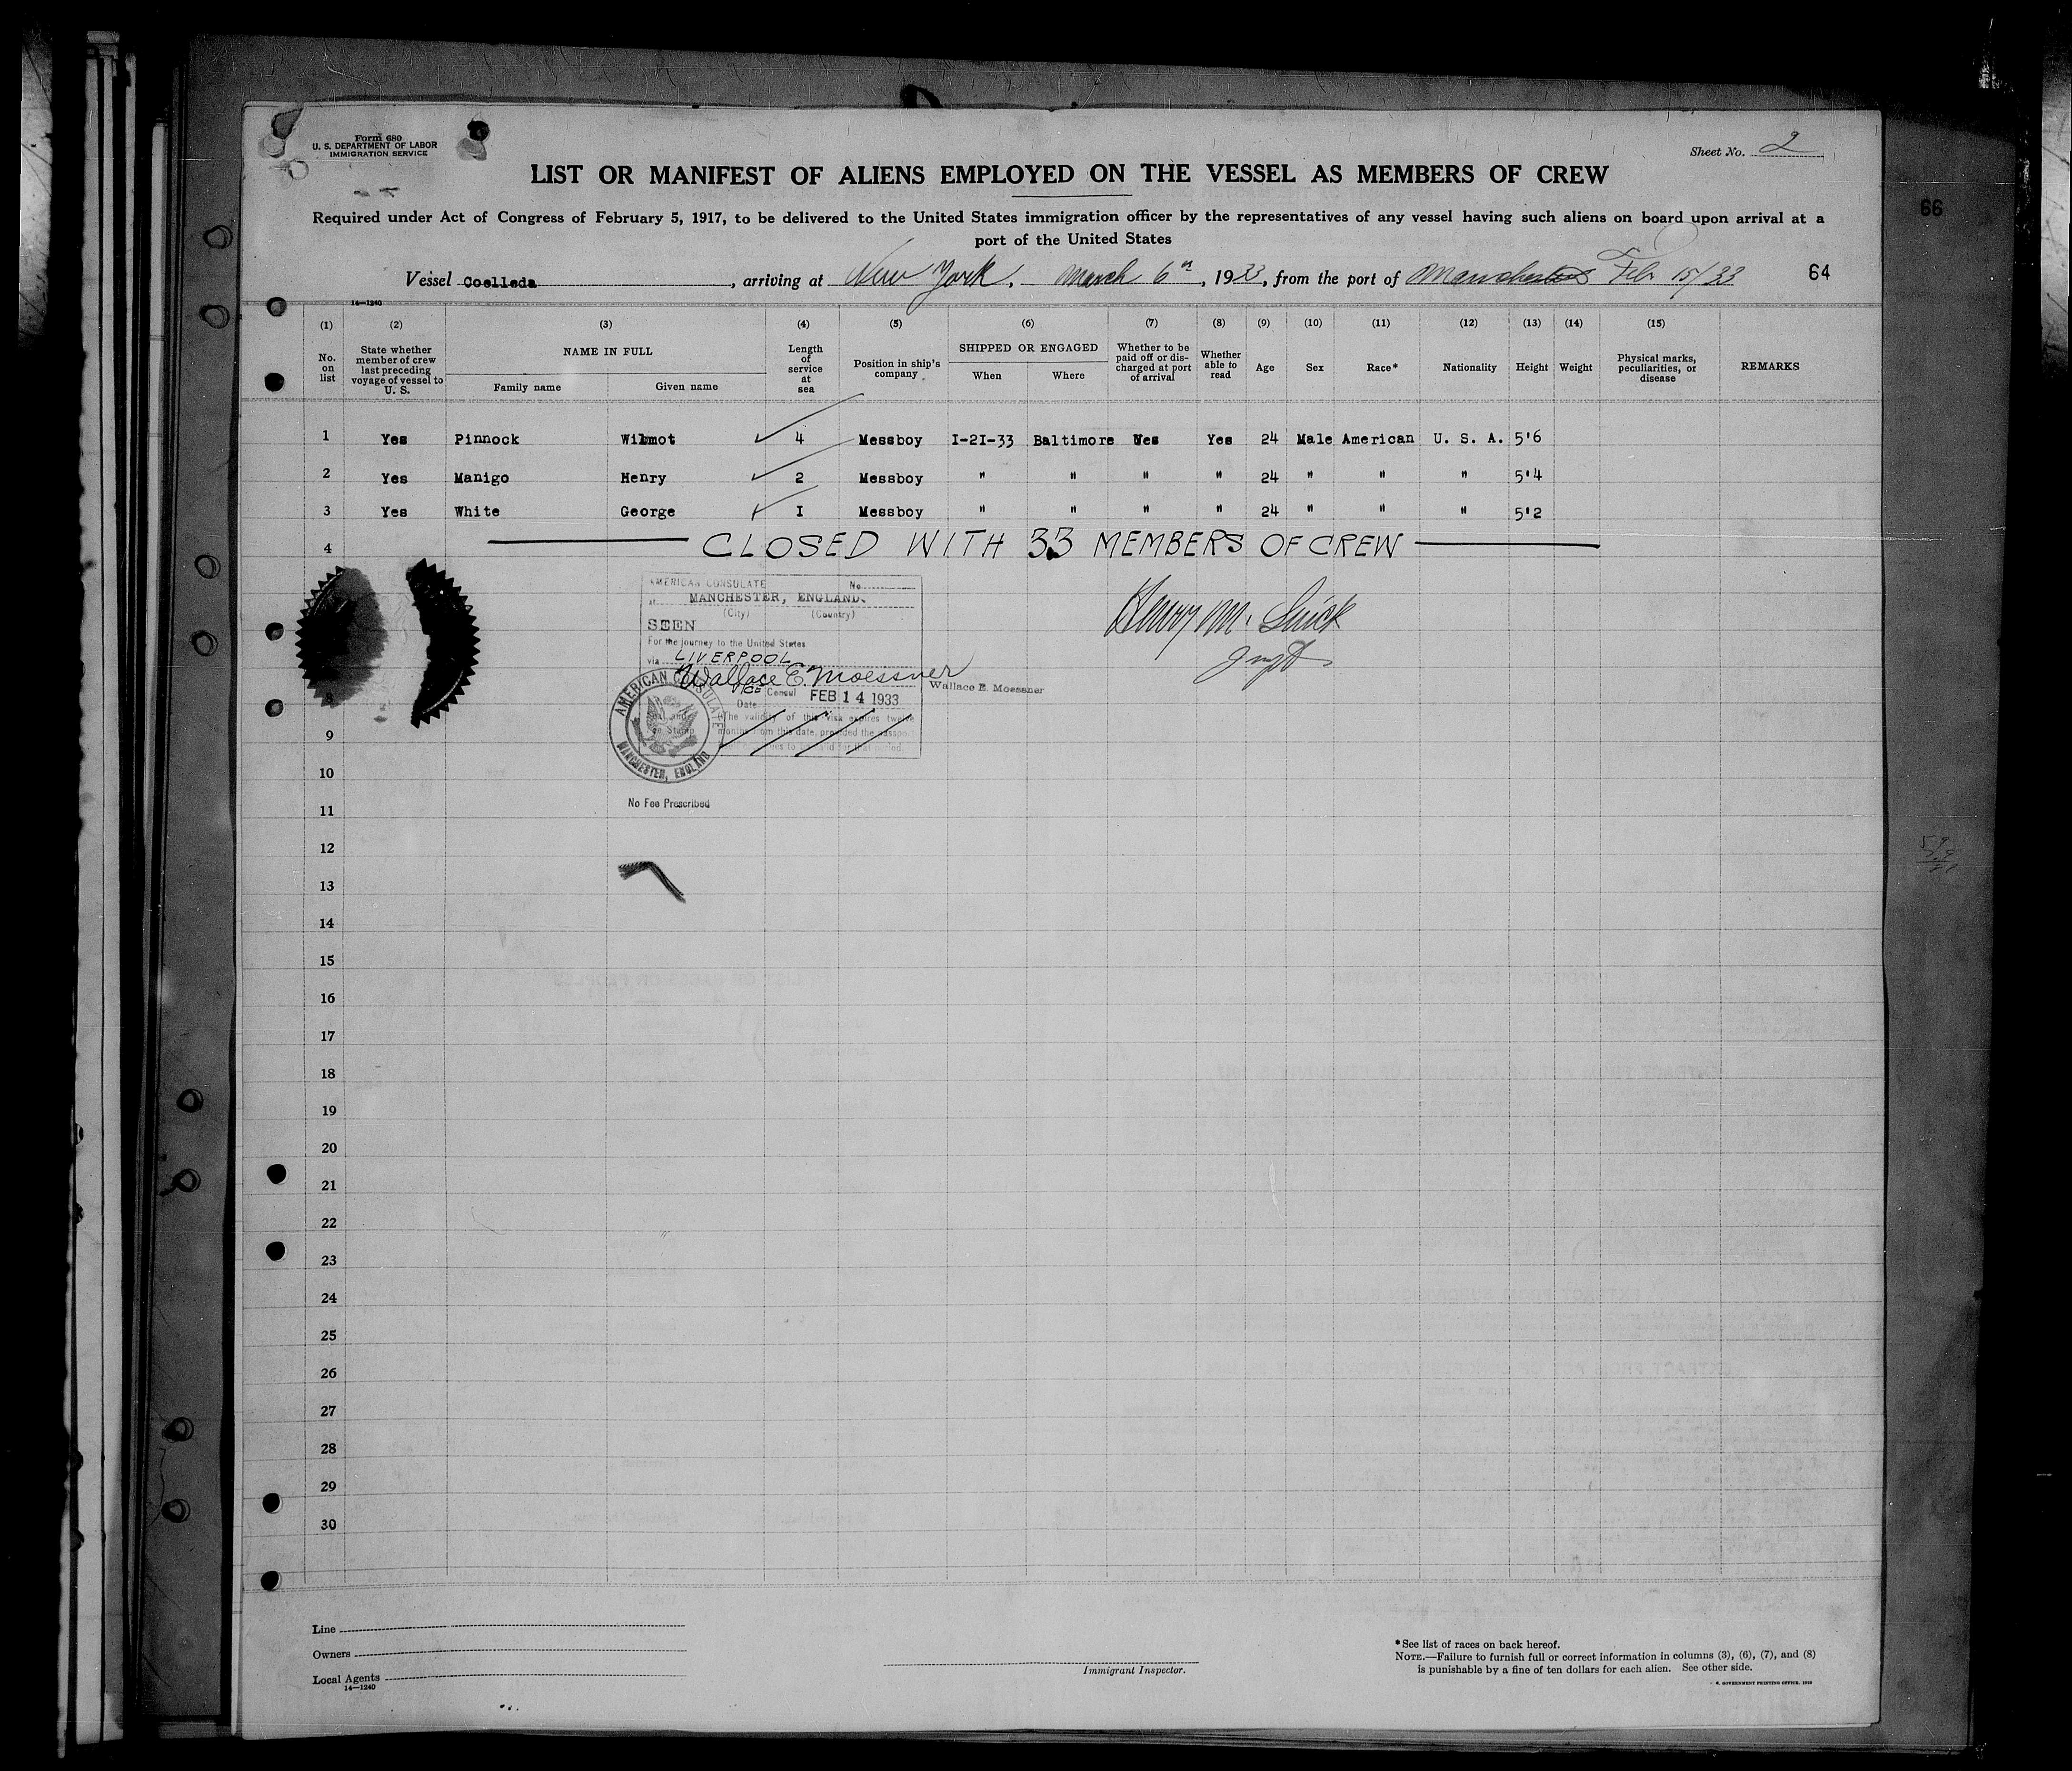 Form 680
U. S. DEPARTMENT OF LABOR
IMMIGRATION SERVICE
Sheet No. 2
LIST OR MANIFEST OF ALIENS EMPLOYED ON THE VESSEL AS MEMBERS OF CREW
66
Required under Act of Congress of February 5, 1917, to be delivered to the United States immigration officer by the representatives of any vessel having such aliens on board upon arrival at a
port of the United States
Vessel Coelleda, arriving at New York, March 6th, 1933, from the port of Manchester Feb 15/33 64
14-1240
(1) (2) (3) (4) (5) (6) (7) (8) (9) (10) (11) (12) (13) (14) (15)
No. on list State whether member of crew last preceding voyage of vessel to U. S. NAME IN FULL Family name Given name Length of service at sea Position in ship's company SHIPPED OR ENGAGED When Where Whether to be paid off or discharged at port of arrival Whether able to read Age Sex Race* Nationality Height Weight Physical marks, peculiarities, or disease REMARKS
1 Yes Pinnock Wilmot 4 Messboy I-2I-33 Baltimore Yes Yes 24 Male American U. S. A. 5'6
2 Yes Manigo Henry 2 Messboy " " " " 24 " " " 5'4
3 Yes White George I Messboy " " " " 24 " " " 5'2
4 CLOSED WITH 33 MEMBERS OF CREW
AMERICAN CONSULATE No.
at MANCHESTER, ENGLAND.
(City) (Country)
SEEN
For the journey to the United States
via LIVERPOOL
Wallace E. Moessner
Vice Consul FEB 14 1933 Wallace E. Moessner
Date
The validity of this visa expires twelve
months from this date, provided the
AMERICAN CONSULATE
MANCHESTER, ENGLAND
No Fee Prescribed
Henry M.
8
9
10
11
12
13
14
15
16
17
18
19
20
21
22
23
24
25
26
27
28
29
30
Line
Owners
Local Agents
14-1240
Immigrant Inspector.
*See list of races on back hereof.
NOTE.—Failure to furnish full or correct information in columns (3), (6), (7), and (8)
is punishable by a fine of ten dollars for each alien. See other side.
GOVERNMENT PRINTING OFFICE